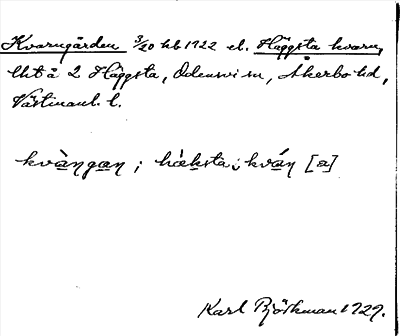 Kvarngården 3/20 hb 1922 el. Häggsta kvarn,
lht å 2 Häggsta, Odensvi sn, Åkerbo hd,
Västmanl. l.
kvàngan; hæ̀ksta; kván [a]
Karl Björkman 1929.